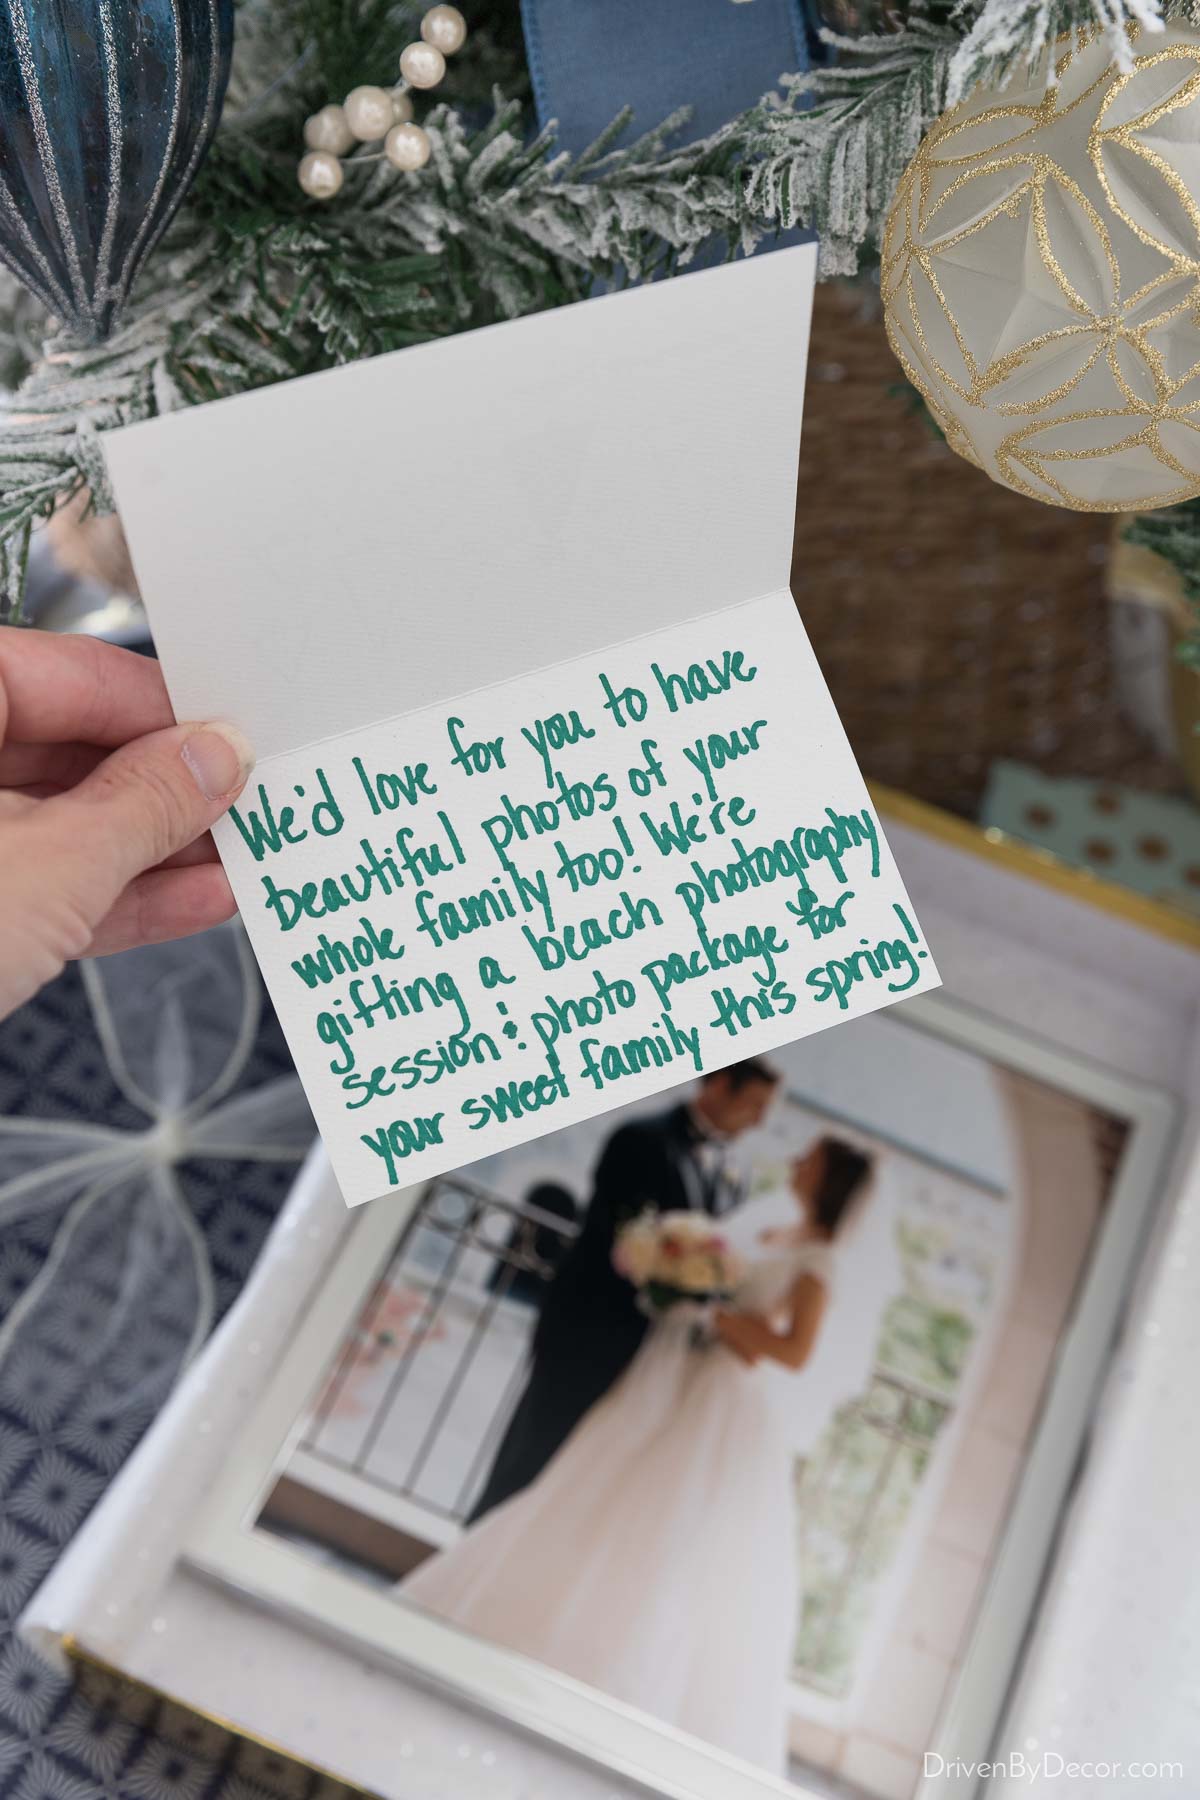 We'd love for you to have
beautiful photos of your
whole family too! We're
gifting a beach photography
session & photo package for
your sweet family this spring!
DrivenByDecor.com